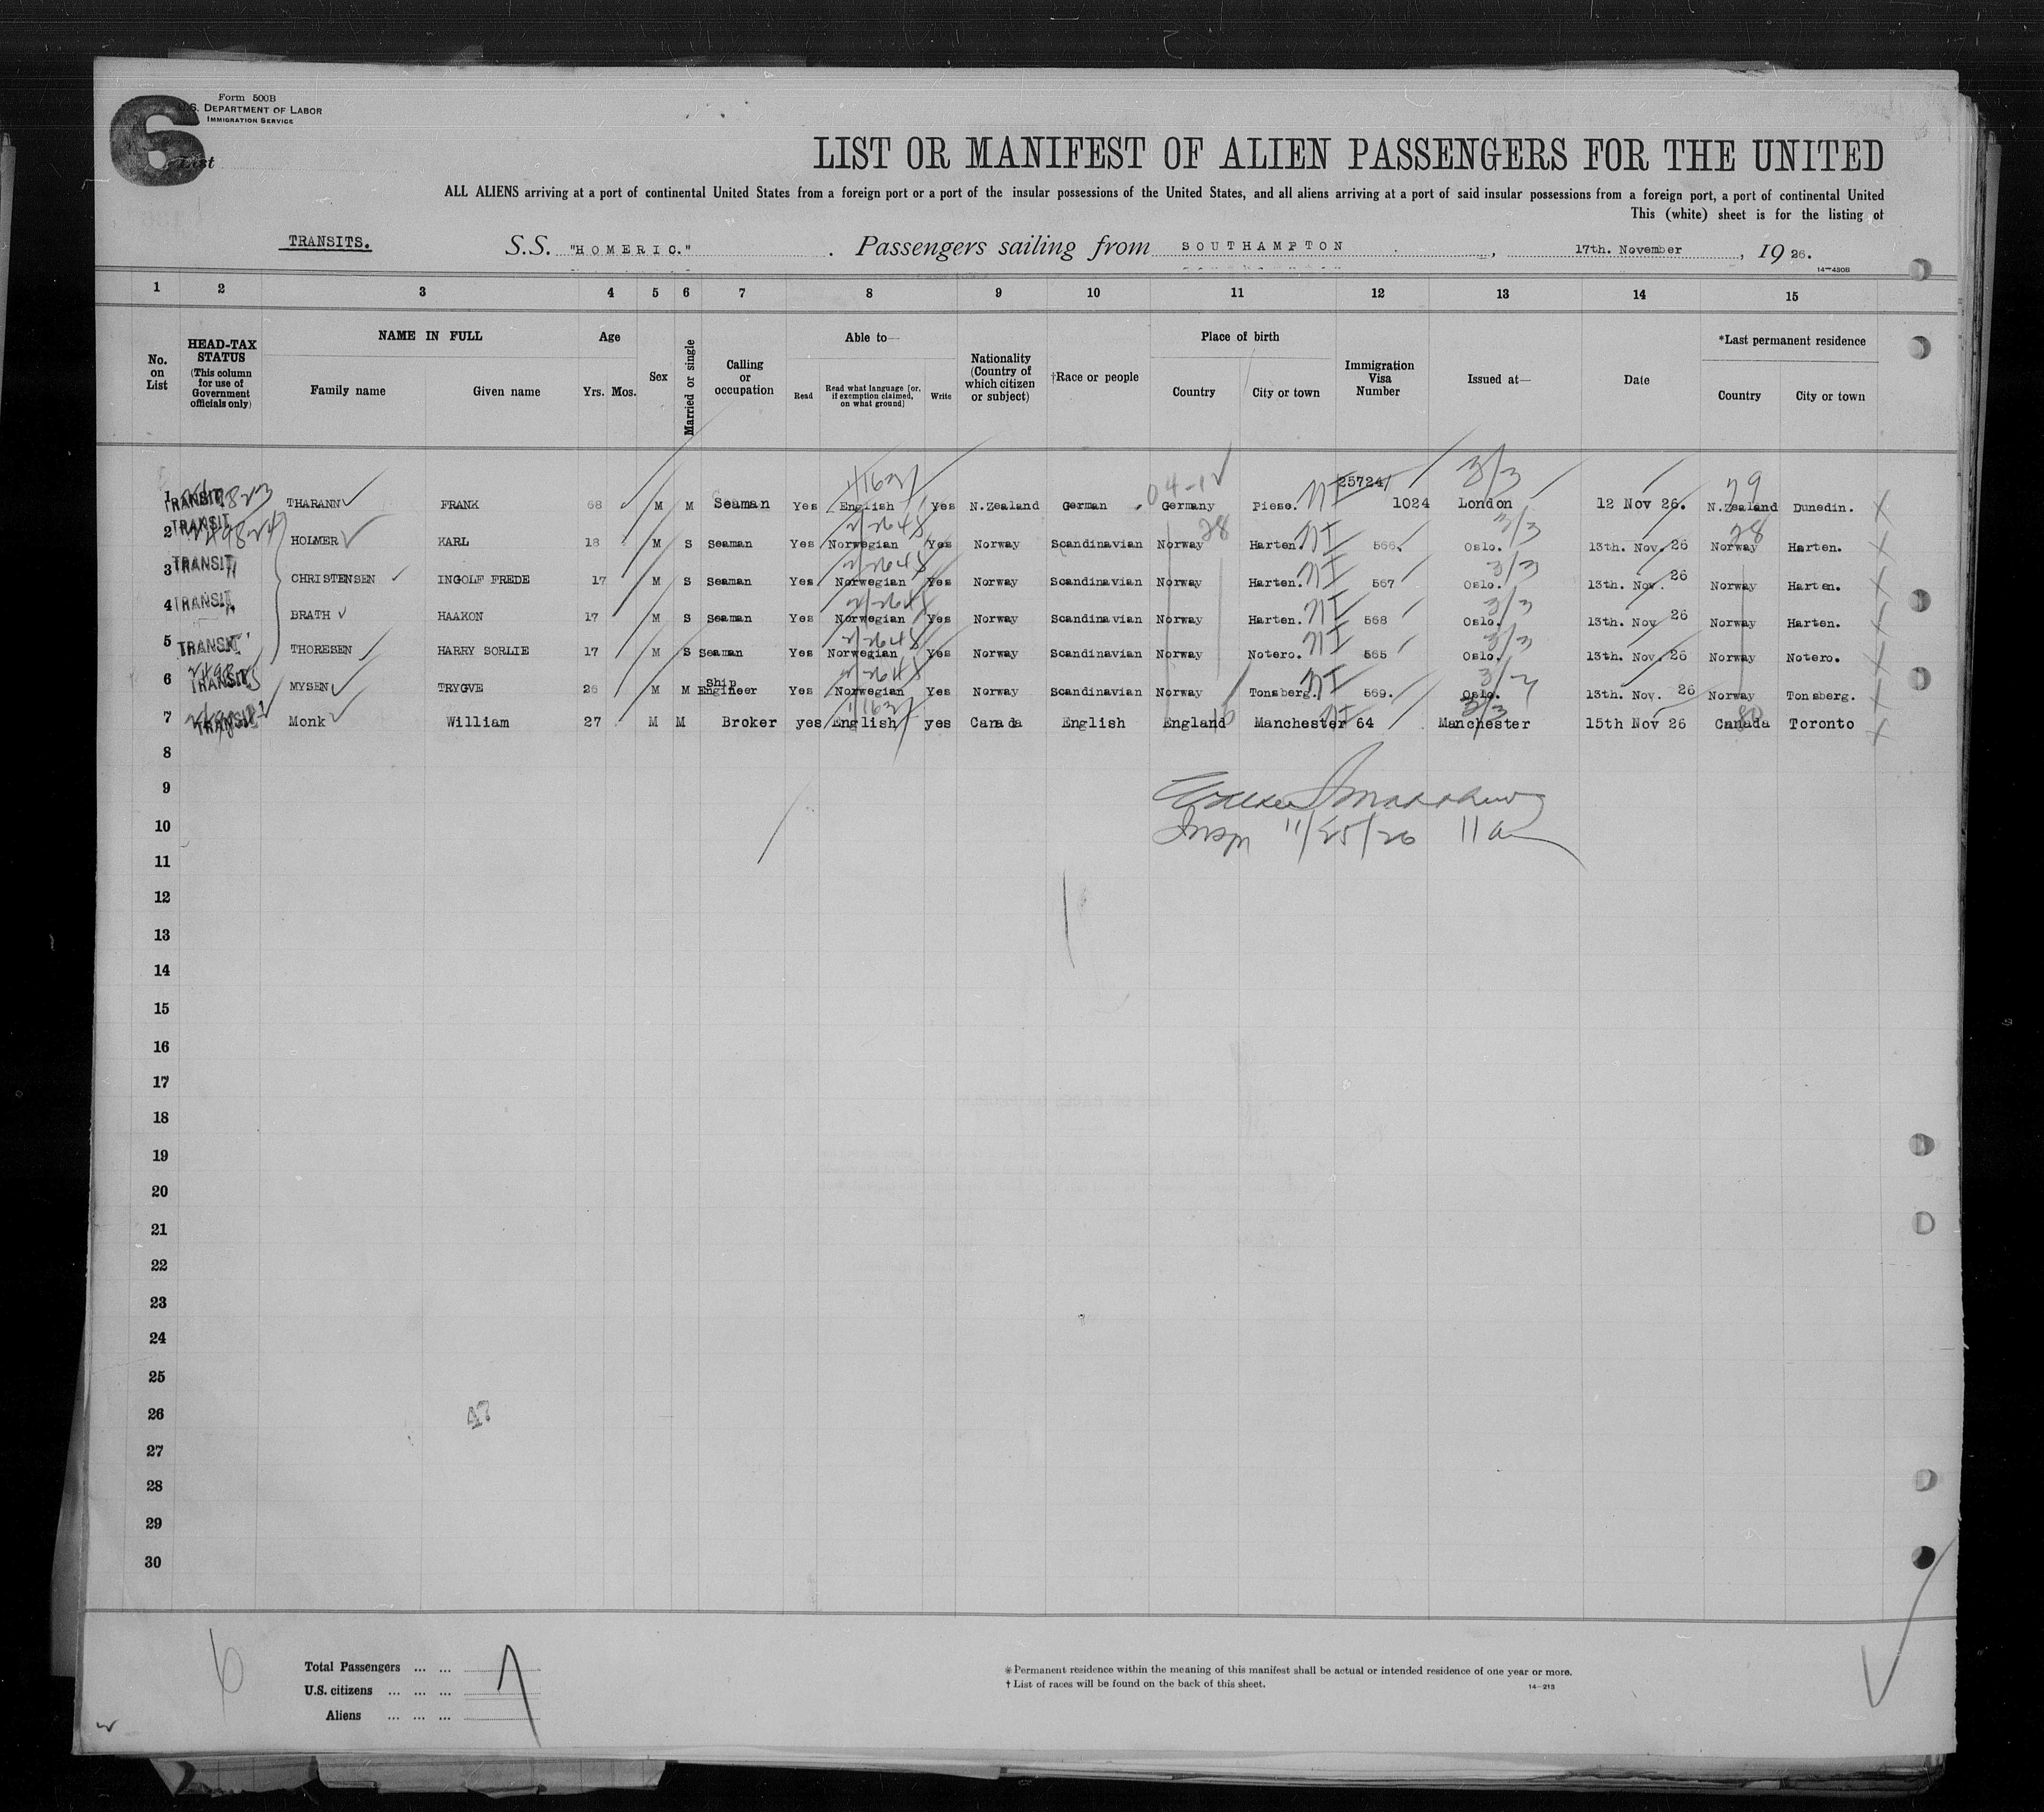 6
Form 500B
U.S. DEPARTMENT OF LABOR
IMMIGRATION SERVICE
List
LIST OR MANIFEST OF ALIEN PASSENGERS FOR THE UNITED
ALL ALIENS arriving at a port of continental United States from a foreign port or a port of the insular possessions of the United States, and all aliens arriving at a port of said insular possessions from a foreign port, a port of continental United
This (white) sheet is for the listing of
TRANSITS. S.S. "HOMERIC." Passengers sailing from SOUTHAMPTON, 17th. November, 1926.
14-430B
1 2 3 4 5 6 7 8 9 10 11 12 13 14 15
No. on List
HEAD-TAX STATUS (This column for use of Government officials only)
NAME IN FULL
Family name Given name
Age
Yrs. Mos.
Sex
Married or single
Calling or occupation
Able to—
Read
Read what language [or, if exemption claimed, on what ground]
Write
Nationality (Country of which citizen or subject)
†Race or people
Place of birth
Country City or town
Immigration Visa Number
Issued at—
Date
*Last permanent residence
Country City or town
04-12 3/3 79
25724
1 TRANSIT THARANN FRANK 68 M M Seaman Yes English Yes N.Zealand German Germany Piese. NI 1024 London 12 Nov 26. N.Zealand Dunedin. X
28 3/3 28
2 TRANSIT HOLMER KARL 18 M S Seaman Yes Norwegian Yes Norway Scandinavian Norway Harten. NI 566. Oslo. 13th. Nov. 26 Norway Harten. X
3/3
3 TRANSIT CHRISTENSEN INGOLF FREDE 17 M S Seaman Yes Norwegian Yes Norway Scandinavian Norway Harten. NI 567 Oslo. 13th. Nov. 26 Norway Harten. X
3/3
4 TRANSIT BRATH HAAKON 17 M S Seaman Yes Norwegian Yes Norway Scandinavian Norway Harten. NI 568 Oslo. 13th. Nov 26 Norway Harten. X
3/3
5 TRANSIT THORESEN HARRY SORLIE 17 M S Seaman Yes Norwegian Yes Norway Scandinavian Norway Notero. NI 565 Oslo. 13th. Nov. 26 Norway Notero. X
6 TRANSIT MYSEN TRYGVE 26 M M Ship Engineer Yes Norwegian Yes Norway Scandinavian Norway Tonsberg. NI 569. Oslo. 13th. Nov. 26 Norway Tonsberg. X
3/3
7 TRANSIT Monk William 27 M M Broker yes English yes Canada English England Manchester NI 64 Manchester 15th Nov 26 Canada Toronto X
8
9
10 Insp 11/25/26 11 a
11
12
13
14
15
16
17
18
19
20
21
22
23
24
25
26
27
28
29
30
6
Total Passengers ... ... 7
U.S. citizens ... ... ...
Aliens ... ... ...
* Permanent residence within the meaning of this manifest shall be actual or intended residence of one year or more.
† List of races will be found on the back of this sheet.
14-213